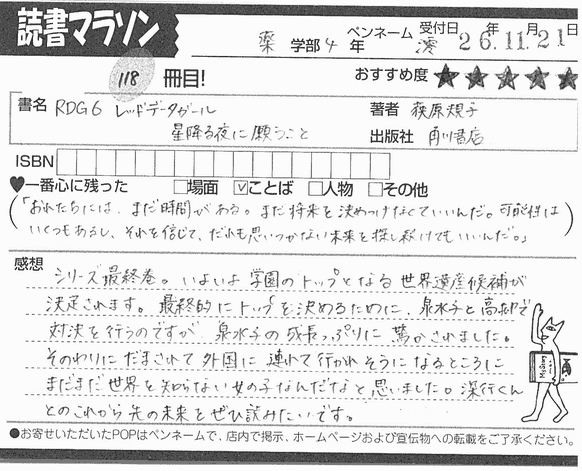 読書マラソン
薬 学部 4 年 ペンネーム 澪 受付日 26年11月21日
118 冊目! おすすめ度 ★★★★★
書名 RDG6 レッドデータガール 著者 荻原規子
星降る夜に願うこと 出版社 角川書店
ISBN
♥一番心に残った □場面 ☑ことば □人物 □その他
(「おれたちには、まだ時間がある。まだ将来を決めつけなくていいんだ。可能性は
いくつもあるし、それを信じて、だれも思いつかない未来を探し続けてもいいんだ。」)
感想
シリーズ最終巻。いよいよ学園のトップとなる世界遺産候補が
決定されます。最終的にトップを決めるために、泉水子と高柳で
対決を行うのですが泉水子の成長っぷりに驚かされました。
そのわりにだまされて外国に連れて行かれそうになるところに
まだまだ世界を知らない女の子なんだなと思いました。深行くん
とのこれから先の未来をぜひ読みたいです。
●お寄せいただいたPOPはペンネームで、店内で掲示、ホームページおよび宣伝物への転載をご了承ください。